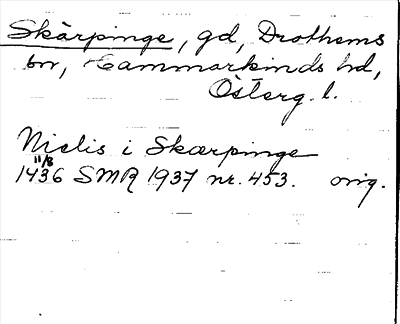 Skärpinge, gd, Drothems
sn, Hammarkinds hd,
Österg. l.
Nielis i Skærpinge
11/8
1436 SMR 1937 nr. 453. orig.